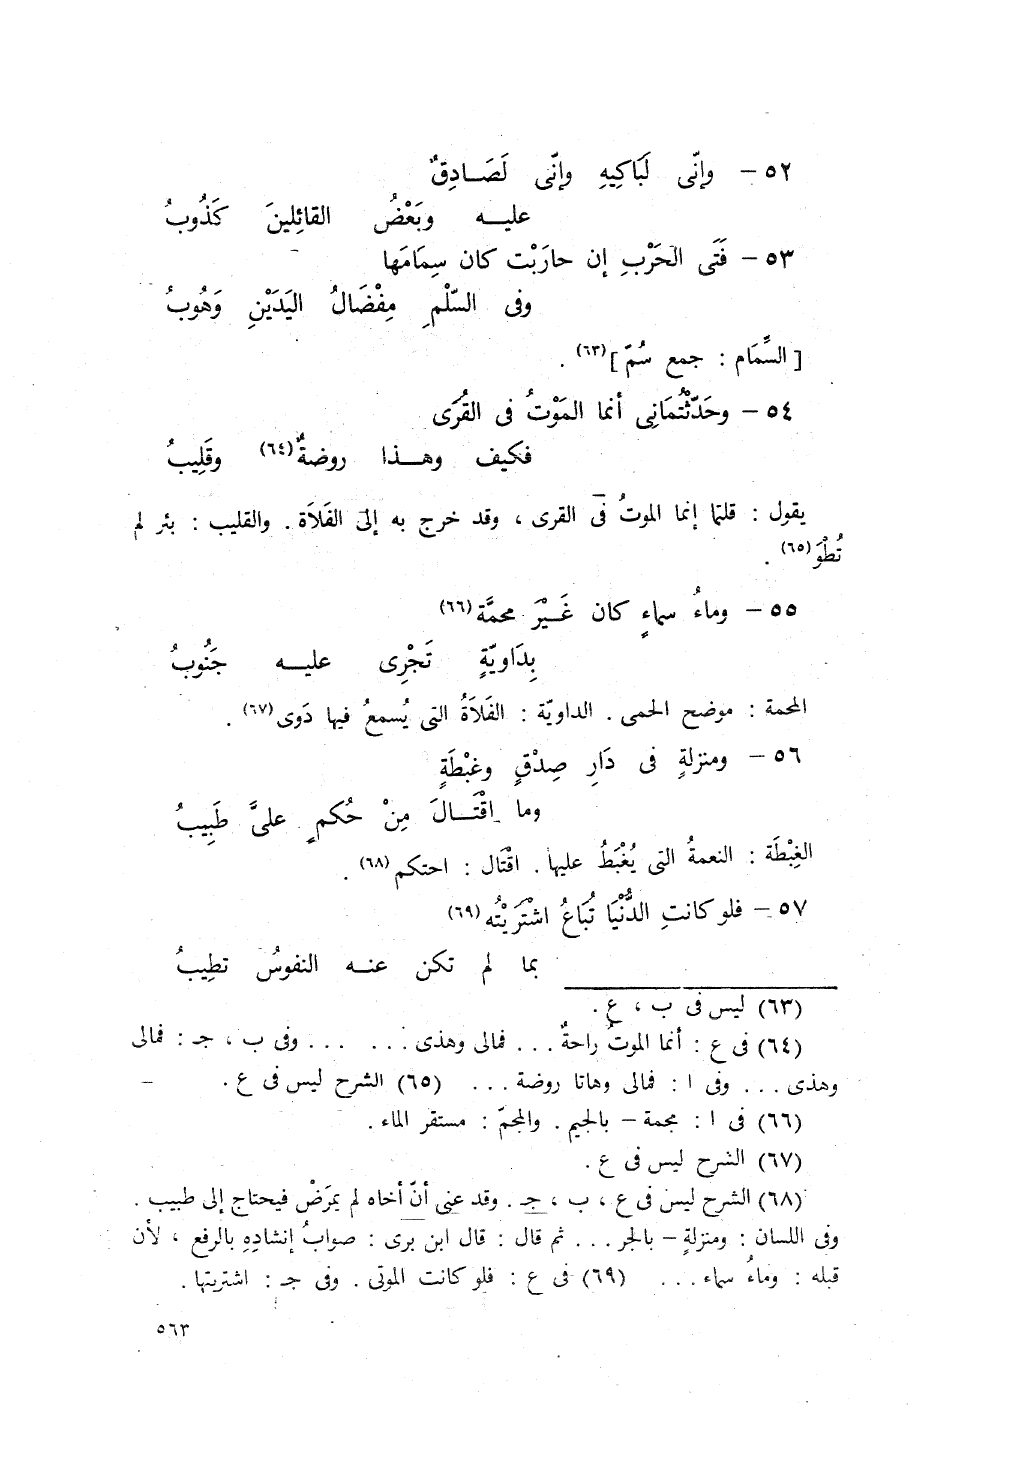 ٥٢ – وإنّى لَبَاكِيهِ وإنّى لَصَـادِقٌ
عليـه وبَعْضُ القائِلينَ كَذُوبُ
٥٣ – فَتَى الحَرْبِ إن حارَبْت كان سِمَامَها
وفى السّلْمِ مِفْضَالُ اليَدَيْنِ وَهُوبُ
[ السِّمَام : جمع سُمّ ] (٦٣) .
٥٤ – وحَدّثْتُمَانِى أنما المَوْتُ فى القُرَى
فكيف وهـذا روضةٌ (٦٤) وقَلِيبُ
يقول : قلتما إنما الموتُ فى القرى ، وقد خرج به إلى الفَلاَة . والقليب : بئر لم
تُطْوَ (٦٥) .
٥٥ – وماءُ سماءٍ كان غَـيْرَ محمَّة (٦٦)
بِدَاويّةٍ تَجْرِى عليـه جَنُوبُ
المحمة : موضح الحمى . الداويّة : الفَلاَةُ التى يُسمعُ فيها دَوى (٦٧) .
٥٦ – ومنزلةٍ فى دَارِ صِدْقٍ وغبْطَةٍ
وما اقْتَـالَ مِنْ حُكمٍ علىَّ طَبِيبُ
الغِبْطَة : النعمةُ التى يُغْبَطُ عليها . اقْتَال : احتكم (٦٨) .
٥٧ – فلو كانتِ الدُّنْيَا تُبَاعُ اشْتَرَيْتُه (٦٩)
بما لم تكن عنـه النفوسُ تطِيبُ
(٦٣) ليس فى ب ، ع .
(٦٤) فى ع : أنما الموتُ راحةٌ ... فمالى وهذى ... ... وفى ب ، جـ : فمالى
وهذى ... وفى ا : فمالى وهاتا روضة ... (٦٥) الشرح ليس فى ع .
(٦٦) فى ا : مجمة – بالجيم . والمجمّ : مستقر الماء .
(٦٧) الشرح ليس فى ع .
(٦٨) الشرح ليس فى ع ، ب ، جـ . وقد عنى أنّ أخاه لم يمرَضْ فيحتاج إلى طبيب .
وفى اللسان : ومنزلةٍ – بالجر ... ثم قال : قال ابن برى : صوابُ إنشادِهِ بالرفع ، لأن
قبله : وماءُ سماء ... (٦٩) فى ع : فلو كانت الموتى . وفى جـ : اشتريتها .
٥٦٣